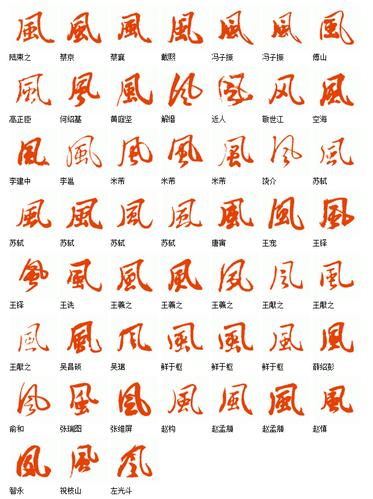 風 風 風 風 風 風 風
陆柬之 蔡京 蔡襄 戴熙 冯子振 冯子振 傅山
風 風 風 風 風 风 風
高正臣 何绍基 黄庭坚 解缙 近人 敬世江 空海
風 風 風 風 風 風 風
李建中 李邕 米芾 米芾 米芾 饶介 苏轼
風 風 風 風 風 風 風
苏轼 苏轼 苏轼 苏轼 唐寅 王宠 王铎
風 風 風 風 風 風 風
王铎 王诜 王羲之 王羲之 王羲之 王献之 王献之
風 風 風 風 風 風 風
王献之 吴昌硕 吴琚 鲜于枢 鲜于枢 鲜于枢 薛绍彭
風 風 風 風 風 風 風
俞和 张瑞图 张维屏 赵构 赵孟頫 赵孟頫 赵禧
風 風 風
智永 祝枝山 左光斗